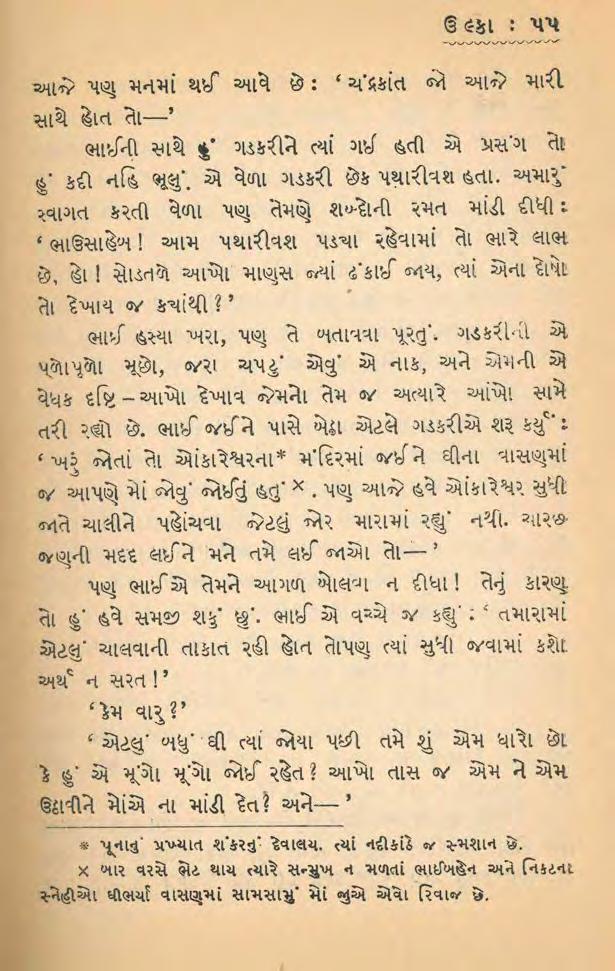 ઉલ્કા : ૫૫
આજે પણ મનમાં થઈ આવે છે : ‘ ચંદ્રકાંત જો આજે મારી
સાથે હોત તો—’
ભાઈની સાથે હું ગડકરીને ત્યાં ગઈ હતી એ પ્રસંગ તો
હું કદી નહિ ભૂલું. એ વેળા ગડકરી છેક પથારીવશ હતા. અમારું
સ્વાગત કરતી વેળા પણ તેમણે શબ્દોની રમત માંડી દીધી :
‘ ભાઉસાહેબ ! આમ પથારીવશ પડ્યા રહેવામાં તો ભારે લાભ
છે, હો ! સોડતળે આખો માણસ જ્યાં ઢંકાઈ જાય, ત્યાં એના દોષો
તો દેખાય જ ક્યાંથી ? ’
ભાઈ હસ્યા ખરા, પણ તે બતાવવા પૂરતું. ગડકરીની એ
પૂળોપૂળો મૂછો, જરા ચપટું એવું એ નાક, અને એમની એ
વેધક દૃષ્ટિ – આખો દેખાવ જેમનો તેમ જ અત્યારે આંખો સામે
તરી રહ્યો છે. ભાઈ જઈને પાસે બેઠા એટલે ગડકરીએ શરૂ કર્યું :
‘ ખરું જોતાં તો ઓંકારેશ્વરના* મંદિરમાં જઈને ઘીના વાસણમાં
જ આપણે મોં જોવું જોઈતું હતું ×. પણ આજે હવે ઓંકારેશ્વર સુધી
જાતે ચાલીને પહોંચવા જેટલું જોર મારામાં રહ્યું નથી. ચારછ
જણની મદદ લઈને મને તમે લઈ જાઓ તો— ’
પણ ભાઈએ તેમને આગળ બોલવા ન દીધા ! તેનું કારણ
તો હું હવે સમજી શકું છું. ભાઈ એ વચ્ચે જ કહ્યું : ‘ તમારામાં
એટલું ચાલવાની તાકાત રહી હોત તોપણ ત્યાં સુધી જવામાં કશો
અર્થ ન સરત ! ’
‘ કેમ વારુ ? ’
‘ એટલું બધું ઘી ત્યાં જોયા પછી તમે શું એમ ધારો છો
કે હું એ મૂંગો મૂંગો જોઈ રહેત ? આખો તાસ જ એમ ને એમ
ઉઠાવીને મોંએ ના માંડી દેત ? અને— ’
* પૂનાનું પ્રખ્યાત શંકરનું દેવાલય. ત્યાં નદીકાંઠે જ સ્મશાન છે.
× બાર વરસે ભેટ થાય ત્યારે સન્મુખ ન મળતાં ભાઈબહેન અને નિકટના
સ્નેહીઓ ઘીભર્યા વાસણમાં સામસામું મોં જુએ એવો રિવાજ છે.